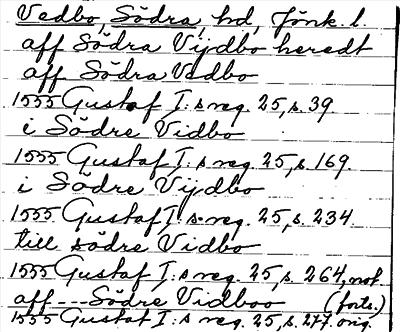 Vedbo, Södra, hd, Jönk. l.
aff Södra Vijdbo heredt
aff Södra Vedbo
1555 Gustaf I:s reg. 25, s. 39.
i Södre Vidbo
1555 Gustaf I:s reg. 25, s. 169.
i Södre Vijdbo
1555 Gustaf I:s reg. 25, s. 234.
till södre Vidbo
1555 Gustaf I:s reg. 25, s. 264, not.
aff --- Södre Vidboo (forts.)
1555 Gustaf I:s reg. 25, s. 277. orig.